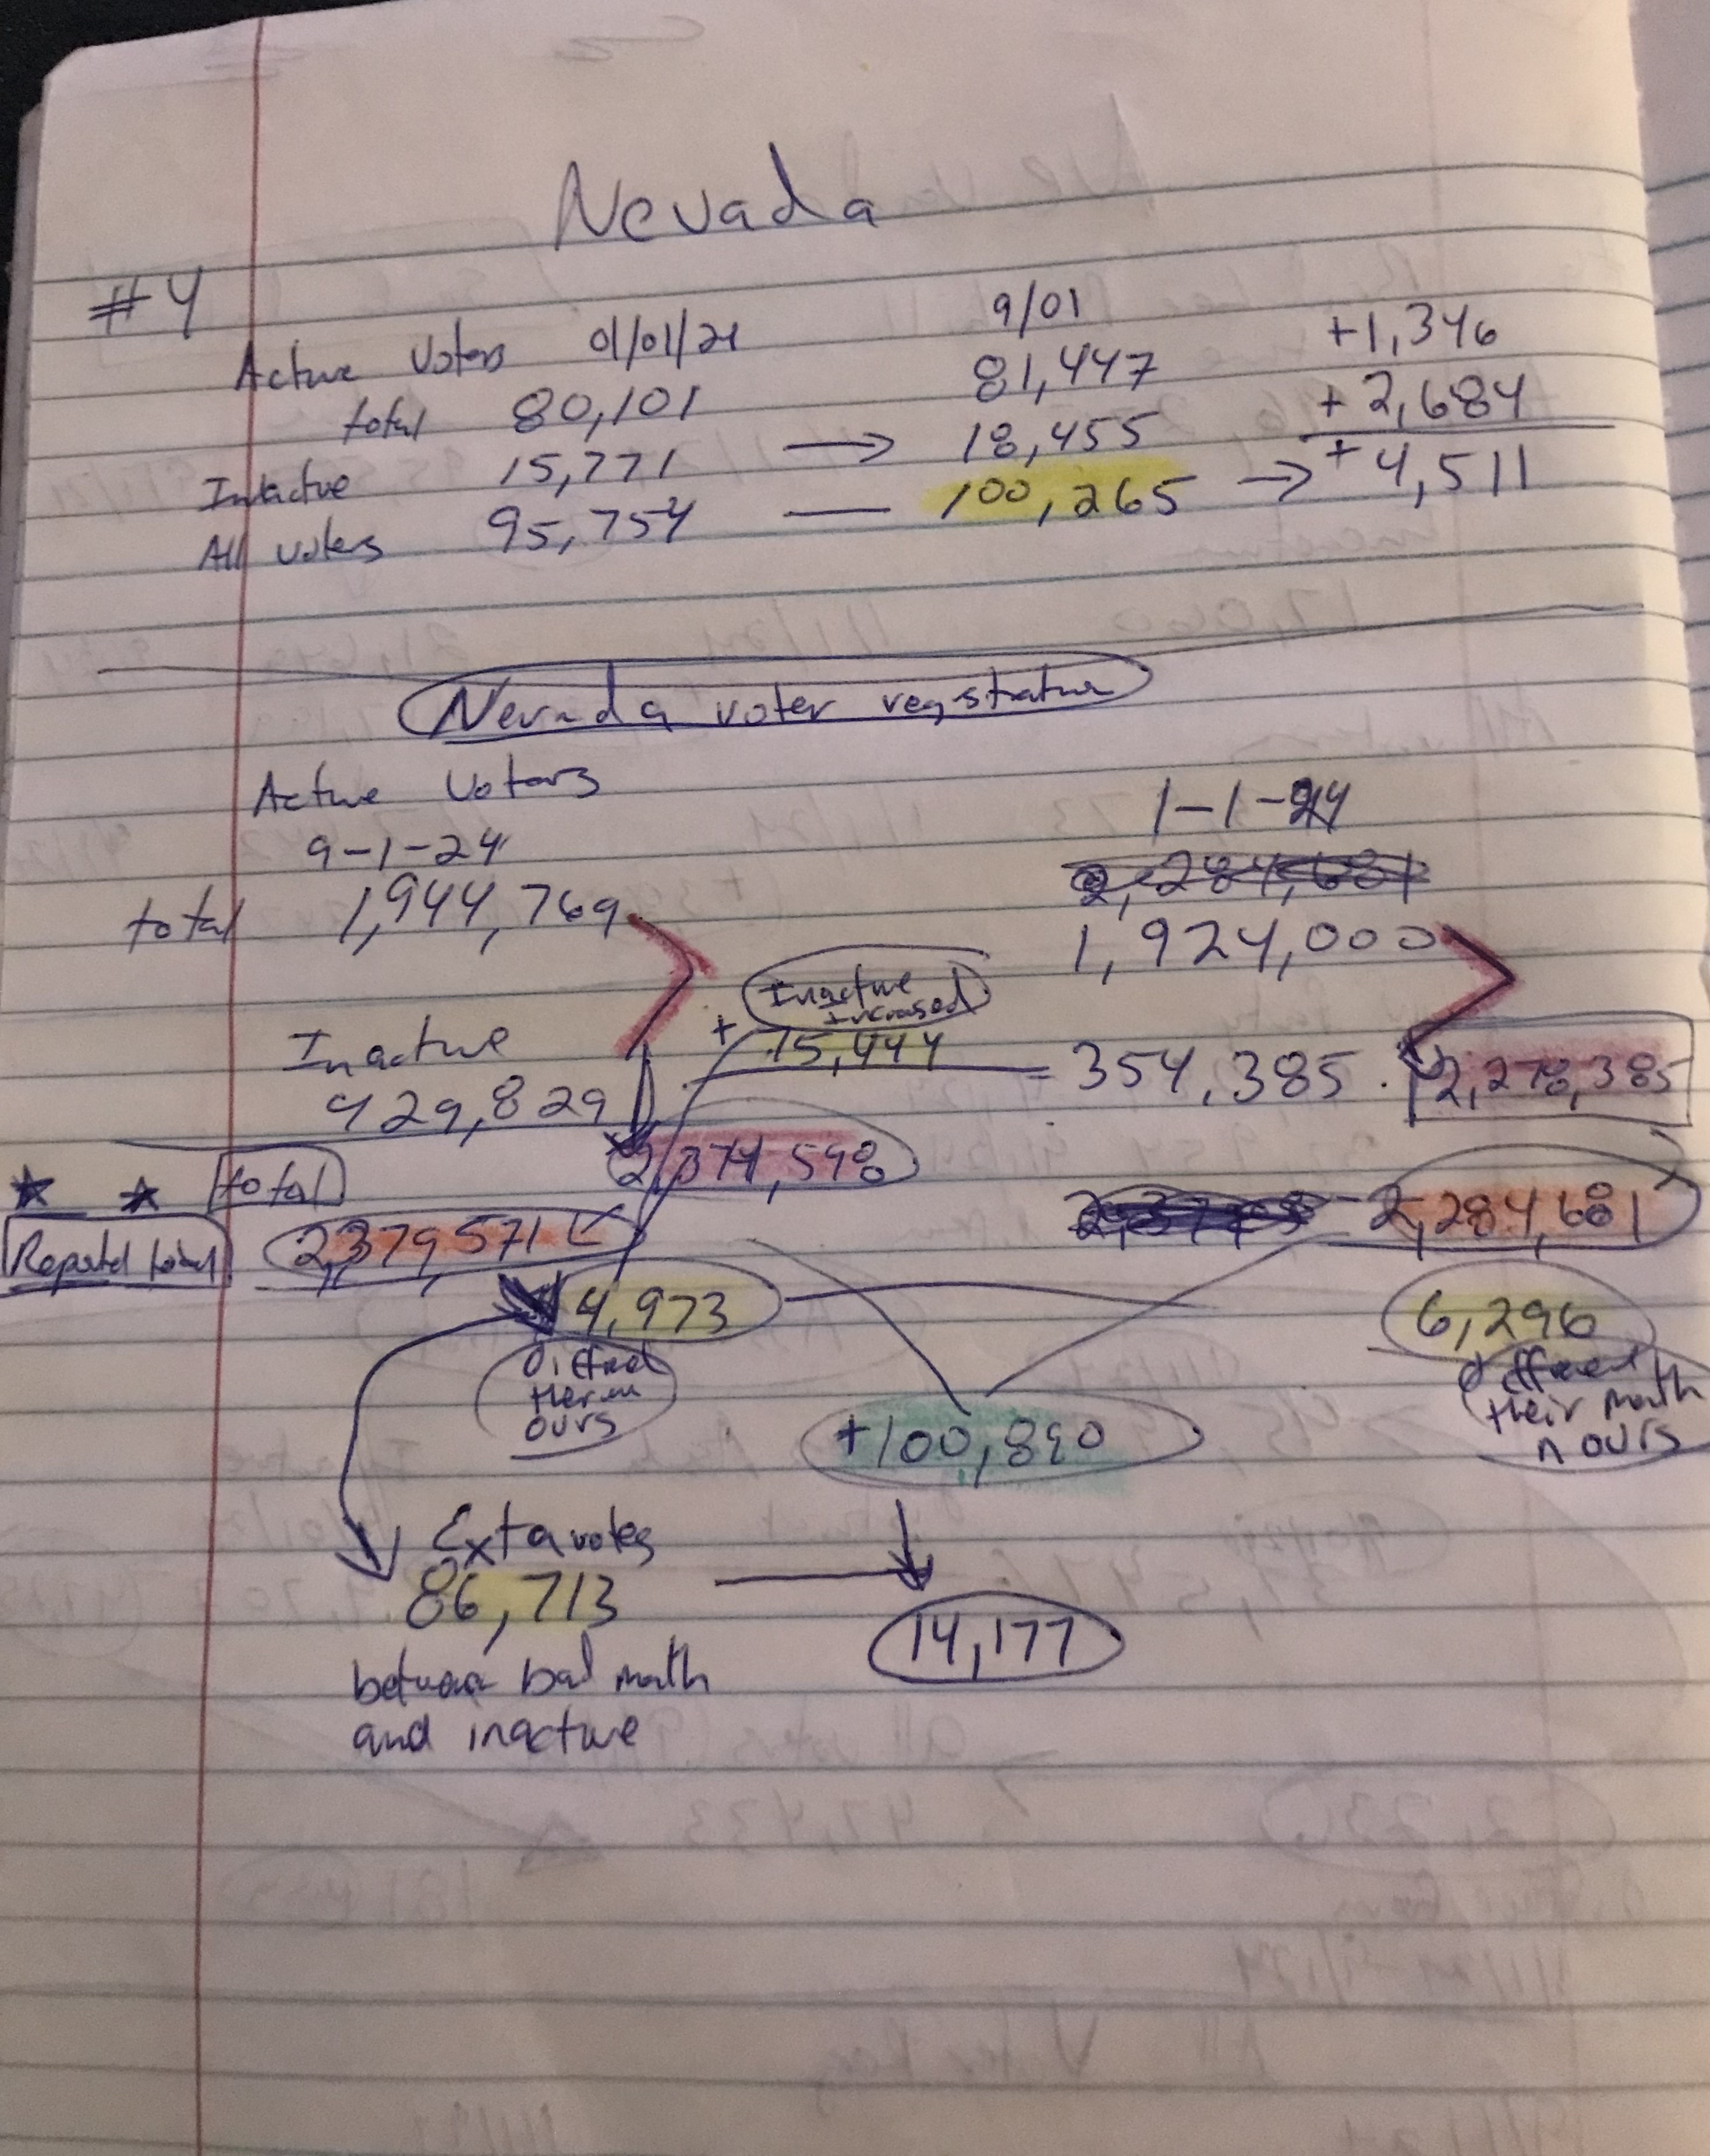 Nevada
#4
9/01
Active Voters 01/01/24 81,447 +1,346
total 80,101 18,455 + 2,684
Inactive 15,771 → 100,265 → +4,511
All voters 95,754 —
Nevada voter registration
Active Voters
9-1-24 1-1-24
2,284,681
total 1,944,769 1,924,000
Inactive
increased
Inactive + 75,444 = 354,385 . 2,278,385
429,829
2,374,598
total
Reported total 2,379,571 2,284,681
4,973 6,296
different
their math
n ours
ours
+100,890
Exta votes
86,713 14,177
between bad math
and inactive